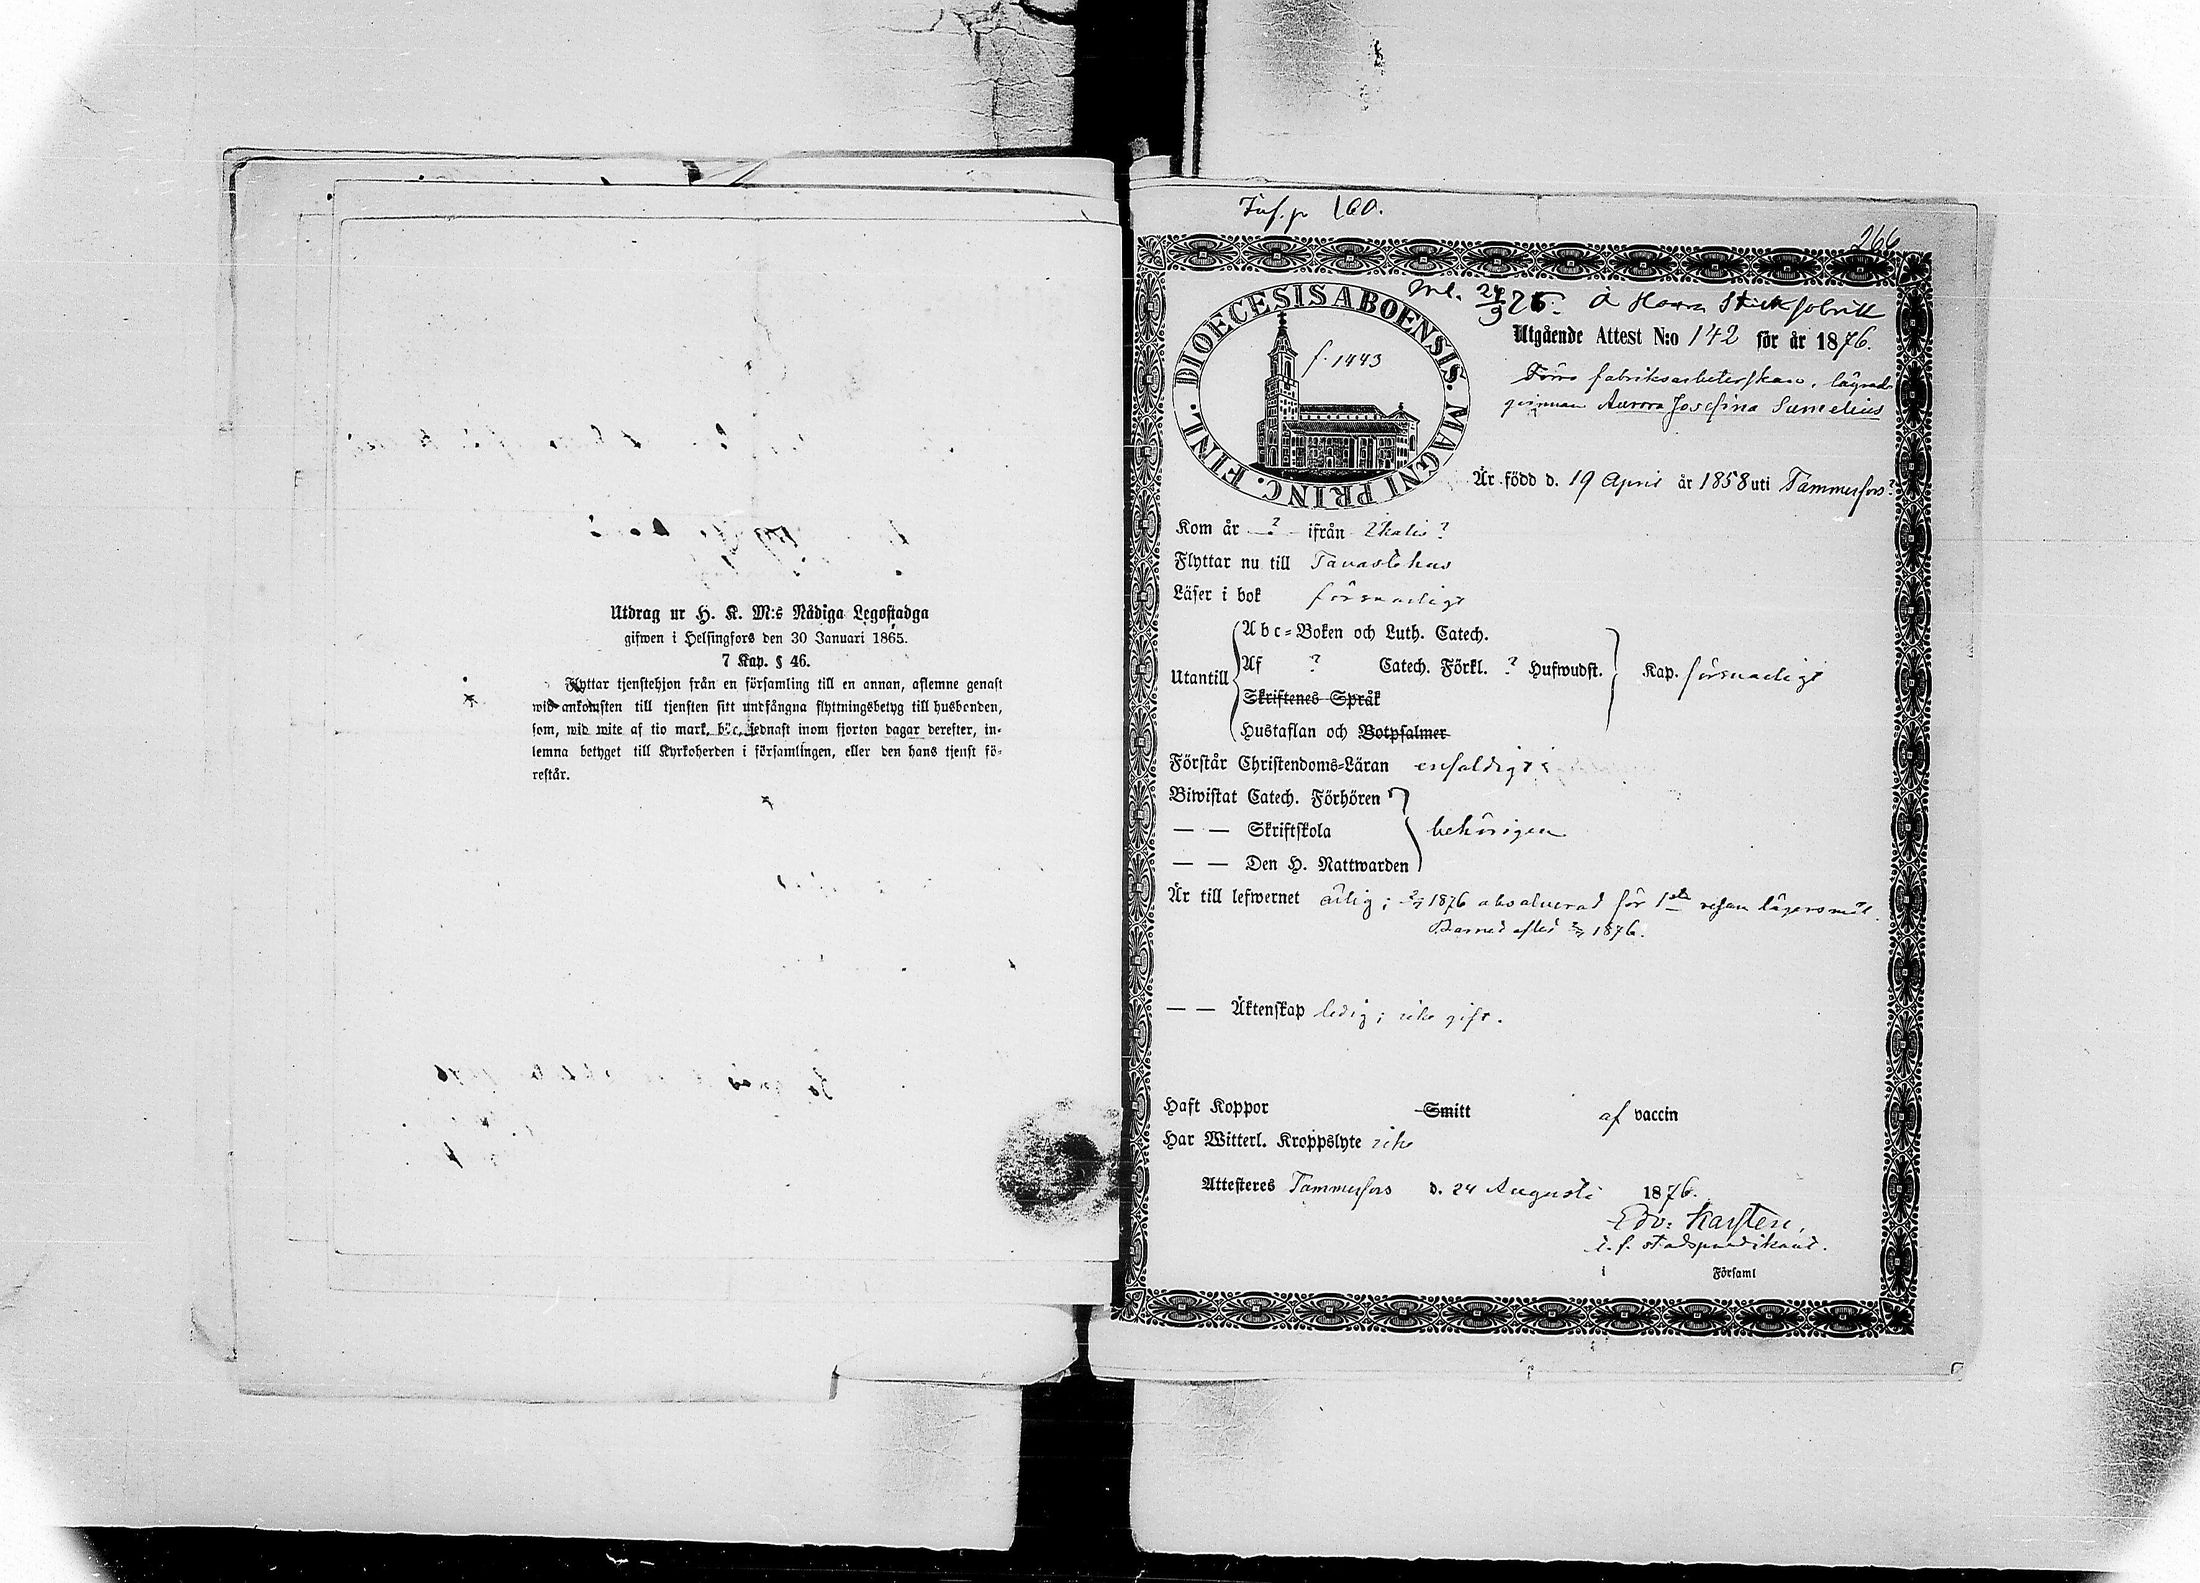 Utdrag ur H. K. M:s Nådiga Legostadga
gifwen i Helsingfors den 30 Januari 1865.
7 Kap. § 46.
Flyttar tjenstehjon från en församling till en annan, aflemne genast
wid ankomsten till tjensten sitt undfångna flyttningsbetyg till husbonden,
som, wid wite af tio mark, bör sednast inom fjorton dagar derefter, in-
lemna betyget till Kyrkoherden i församlingen, eller den hans tjenst fö-
restår.
Inf. p 160.
266
Inl. 24/9 76. å
DIOECESIS ABOENSIS. MAGNI PRINC. FINL.
f. 1443
Utgående Attest N:o 142 för år 1876.
Förra fabriksarbeterskan, lägrad
qvinnan Aurora Josefina Sumelius
Är född d. 19 April år 1858 uti Tammerfors?
Kom år ? ifrån Ikalis?
Flyttar nu till Tavastehus
Läser i bok försvarligt
Utantill
Abc-Boken och Luth. Catech.
Af ? Catech. Förkl. ? Hufwudst.
Kap. försvarligt
Skriftenes Språk
Hustaflan och Botpsalmer
Förstår Christendoms-Läran enfaldigt
Biwistat Catech. Förhören
— — Skriftskola
behörigen
— — Den H. Nattwarden
Är till lefwernet ärlig; 1876 absolverad för 1sta resan lägersmål.
Barnet afled 1876.
— — Äktenskap ledig; icke gift.
Haft Koppor Smitt af vaccin
Har Witterl. Kroppslyte icke
Attesteres Tammerfors d. 24 Augusti 1876.
Edv. Karsten,
t. f. stadspredikant.
i Församl